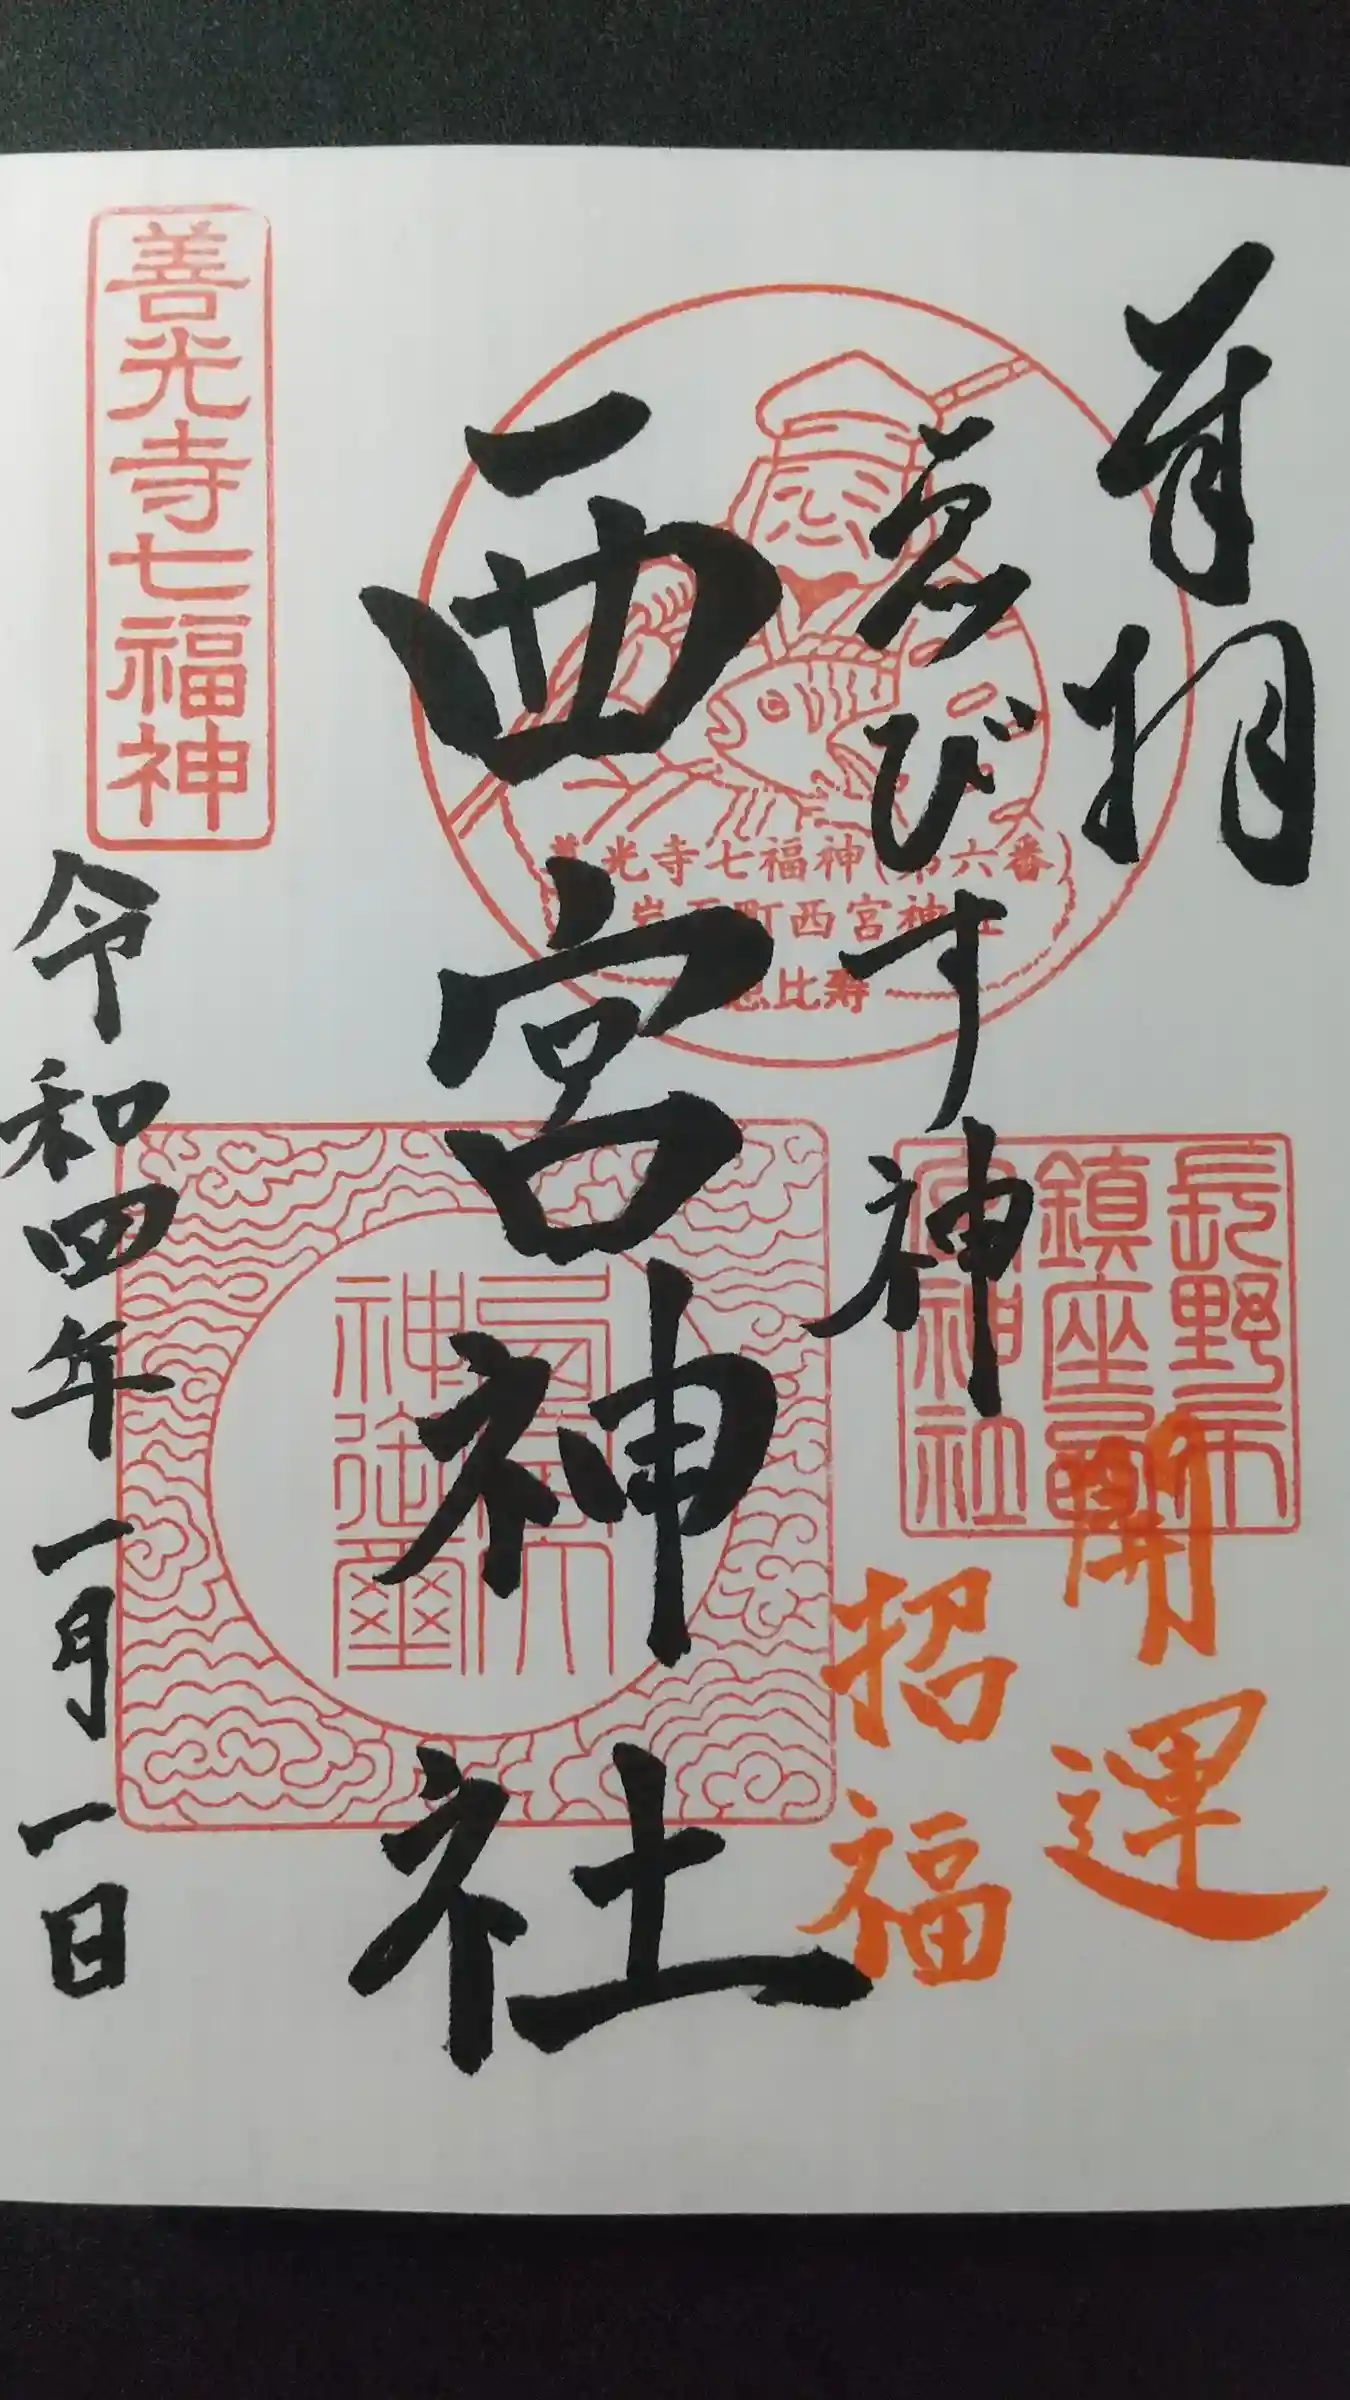 ゑびす神
開運
招福
長野市
鎮座西
宮神社
西宮神社
善光寺七福神(第六番)
岩石町西宮神社
恵比寿
西宮大
神御璽
善光寺七福神
令和四年一月一日